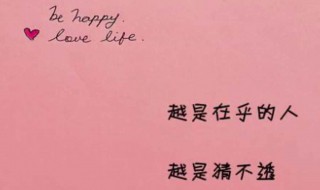 be happy.
love life.
越是在乎的人
越是猜不透